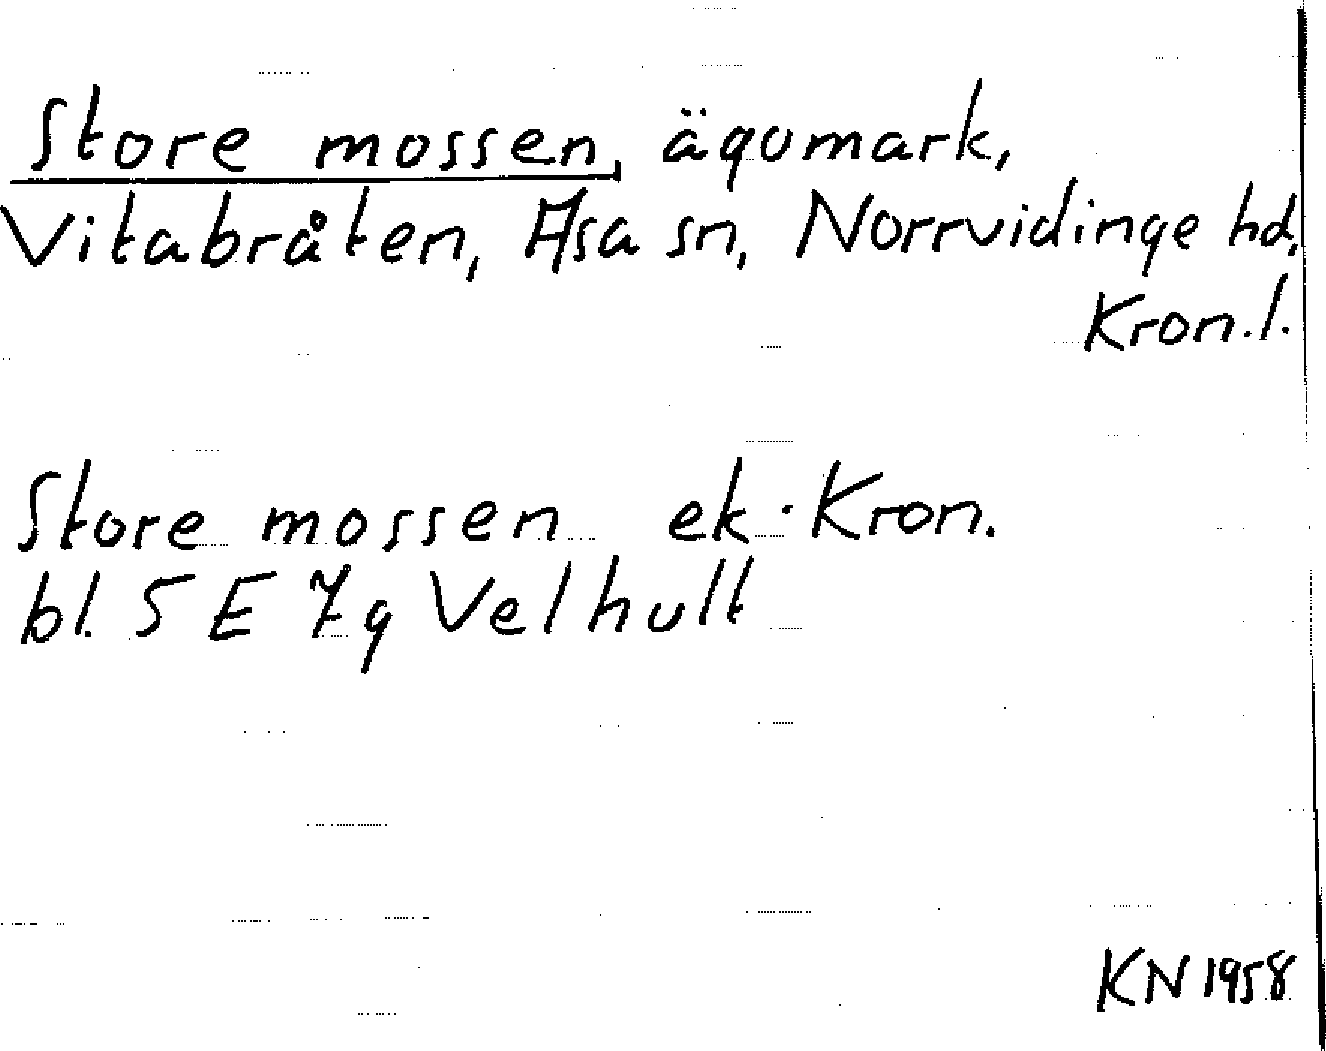 Store mossen, ägomark,
Vitabråten, Asa sn, Norrvidinge hd,
Kron.l.
Store mossen ek. Kron.
bl. 5 E 7g Velhult
KN 1958